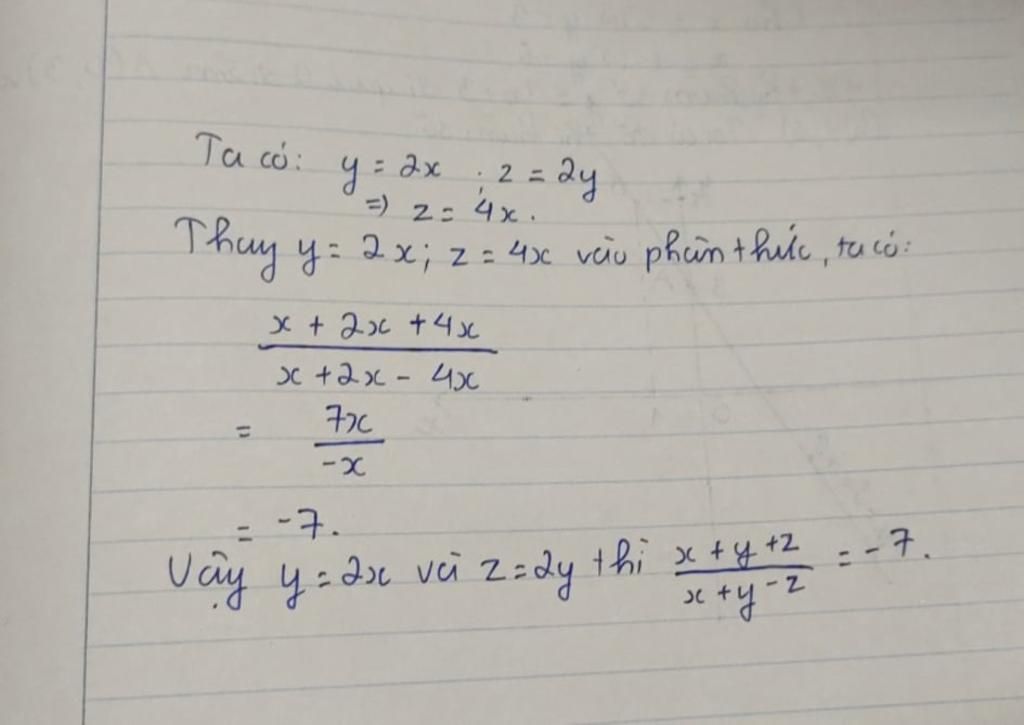 Ta có: y = 2x ; z = 2y
=> z = 4x.
Thay y = 2x; z = 4x vào phân thức, ta có:
x + 2x + 4x
x + 2x - 4x
= 7x
-x
= -7.
Vậy y = 2x và z = 2y thì x + y + z / x + y - z = -7.